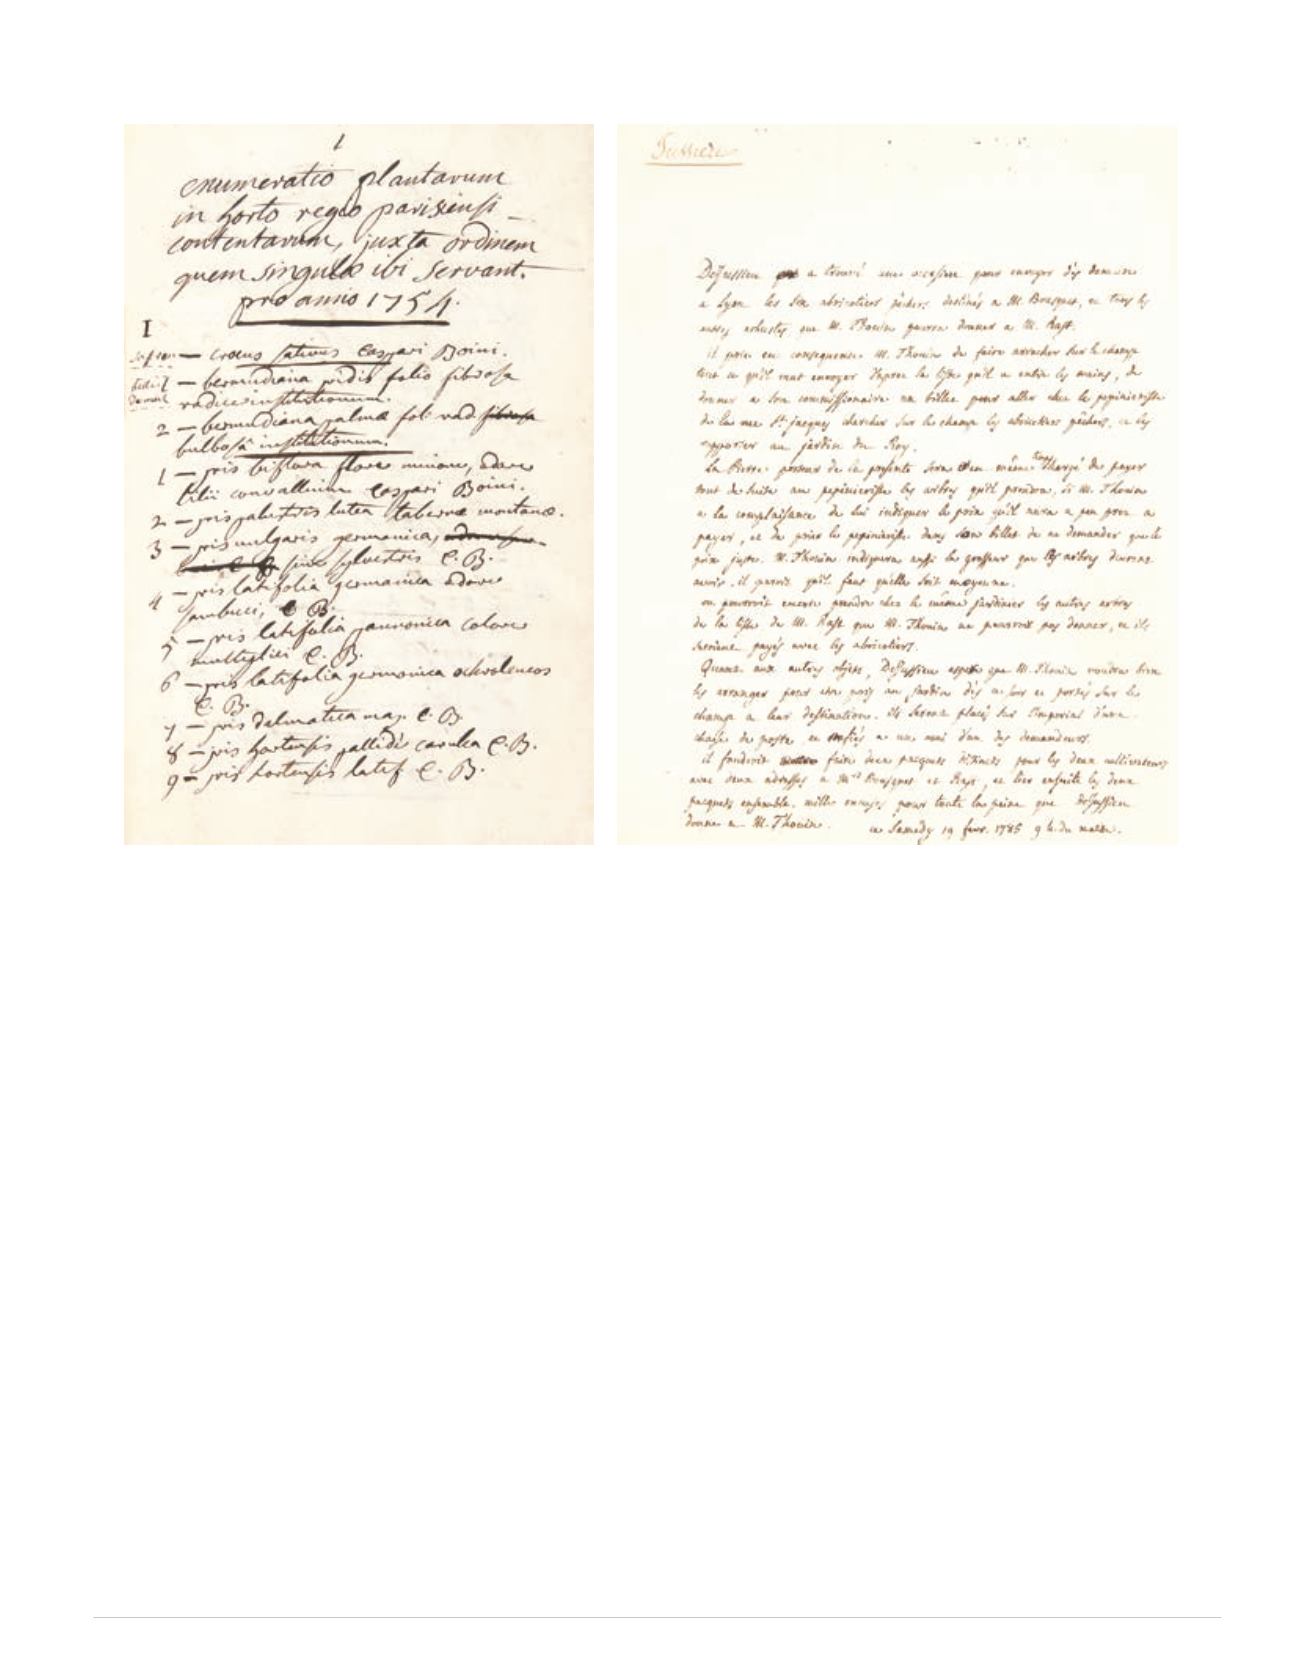 1
enumeratio plantarum
in horto regio parisiensi
contentarum, juxta ordinem
quem singulæ ibi servant.
pro annio 1754.
I
— crocus sativus Caspari Boini.
— bermudiana iridis folio fibrosa
radice institutionum.
2 — bermudiana palmæ fol: rad. fibrosa
bulbosâ institutionum.
1 — iris biflora flore minore, odore
lilii convallium Caspari Boini.
2 — iris palustris lutea tabernæ montanæ.
3 — iris vulgaris germanica,
sive sylvestris C. B.
4 — iris latifolia germanica odore
sambuci, C B.
5 — iris latifolia pannonica colore
multiplici C. B.
6 — iris latifolia germanica ochroleucos
C. B.
7 — iris dalmatica maj. C. B.
8 — iris hortensis pallidè cærulea C. B.
9 — iris hortensis latif C. B.
Jussieu
DeJussieu a trouvé une occasion pour envoyer dès demain
a Lyon les six abricotiers pêches destinés a M. Bousquet, et tous les
autres arbustes que M. Thouin pourra donner a M. Rast.
il prie en consequence M. Thouin de faire arracher sur le champ
tout ce qu'il veut envoyer d'apres la liste qu'il a entre les mains, de
donner a son commissionaire un billet pour aller chez le pepinieriste
de la rue St. jacques chercher sur le champ les abricotiers pêches, et les
apporter au jardin du Roy.
La Pierre porteur de la presente sera en même tems chargé de payer
tout de suite au pepinieriste les arbres qu'il prendra, si M. Thouin
a la complaisance de lui indiquer le prix qu'il aura a peu près a
payer, et de prier le pepinieriste dans son billet de ne demander que le
prix juste. M. Thouin indiquera aussi la grosseur que les arbres doivent
avoir. il paroit qu'il faut qu'elle soit moyenne.
on pourroit encore prendre chez le même jardinier les autres arbres
de la liste de M. Rast que M. Thouin ne pourroit pas donner, et ils
seroient payés avec les abricotiers.
Quant aux autres objets, DeJussieu espere que M. Thouin voudra bien
les arranger pour etre pris au jardin dès ce soir et portés sur le
champ a leur destination. ils seront placés sur l'imperial d'une
chaise de poste, et confiés a un ami d'un des demandeurs.
il faudroit faire deux pacquets distincts pour les deux cultivateurs
avec deux adresses a Mrs Bousquet et Rast, et lier ensuite les deux
pacquets ensemble. mille excuses pour toute la peine que DeJussieu
donne a M. Thouin. ce Samedy 19 fevr. 1785 9 h. du matin.